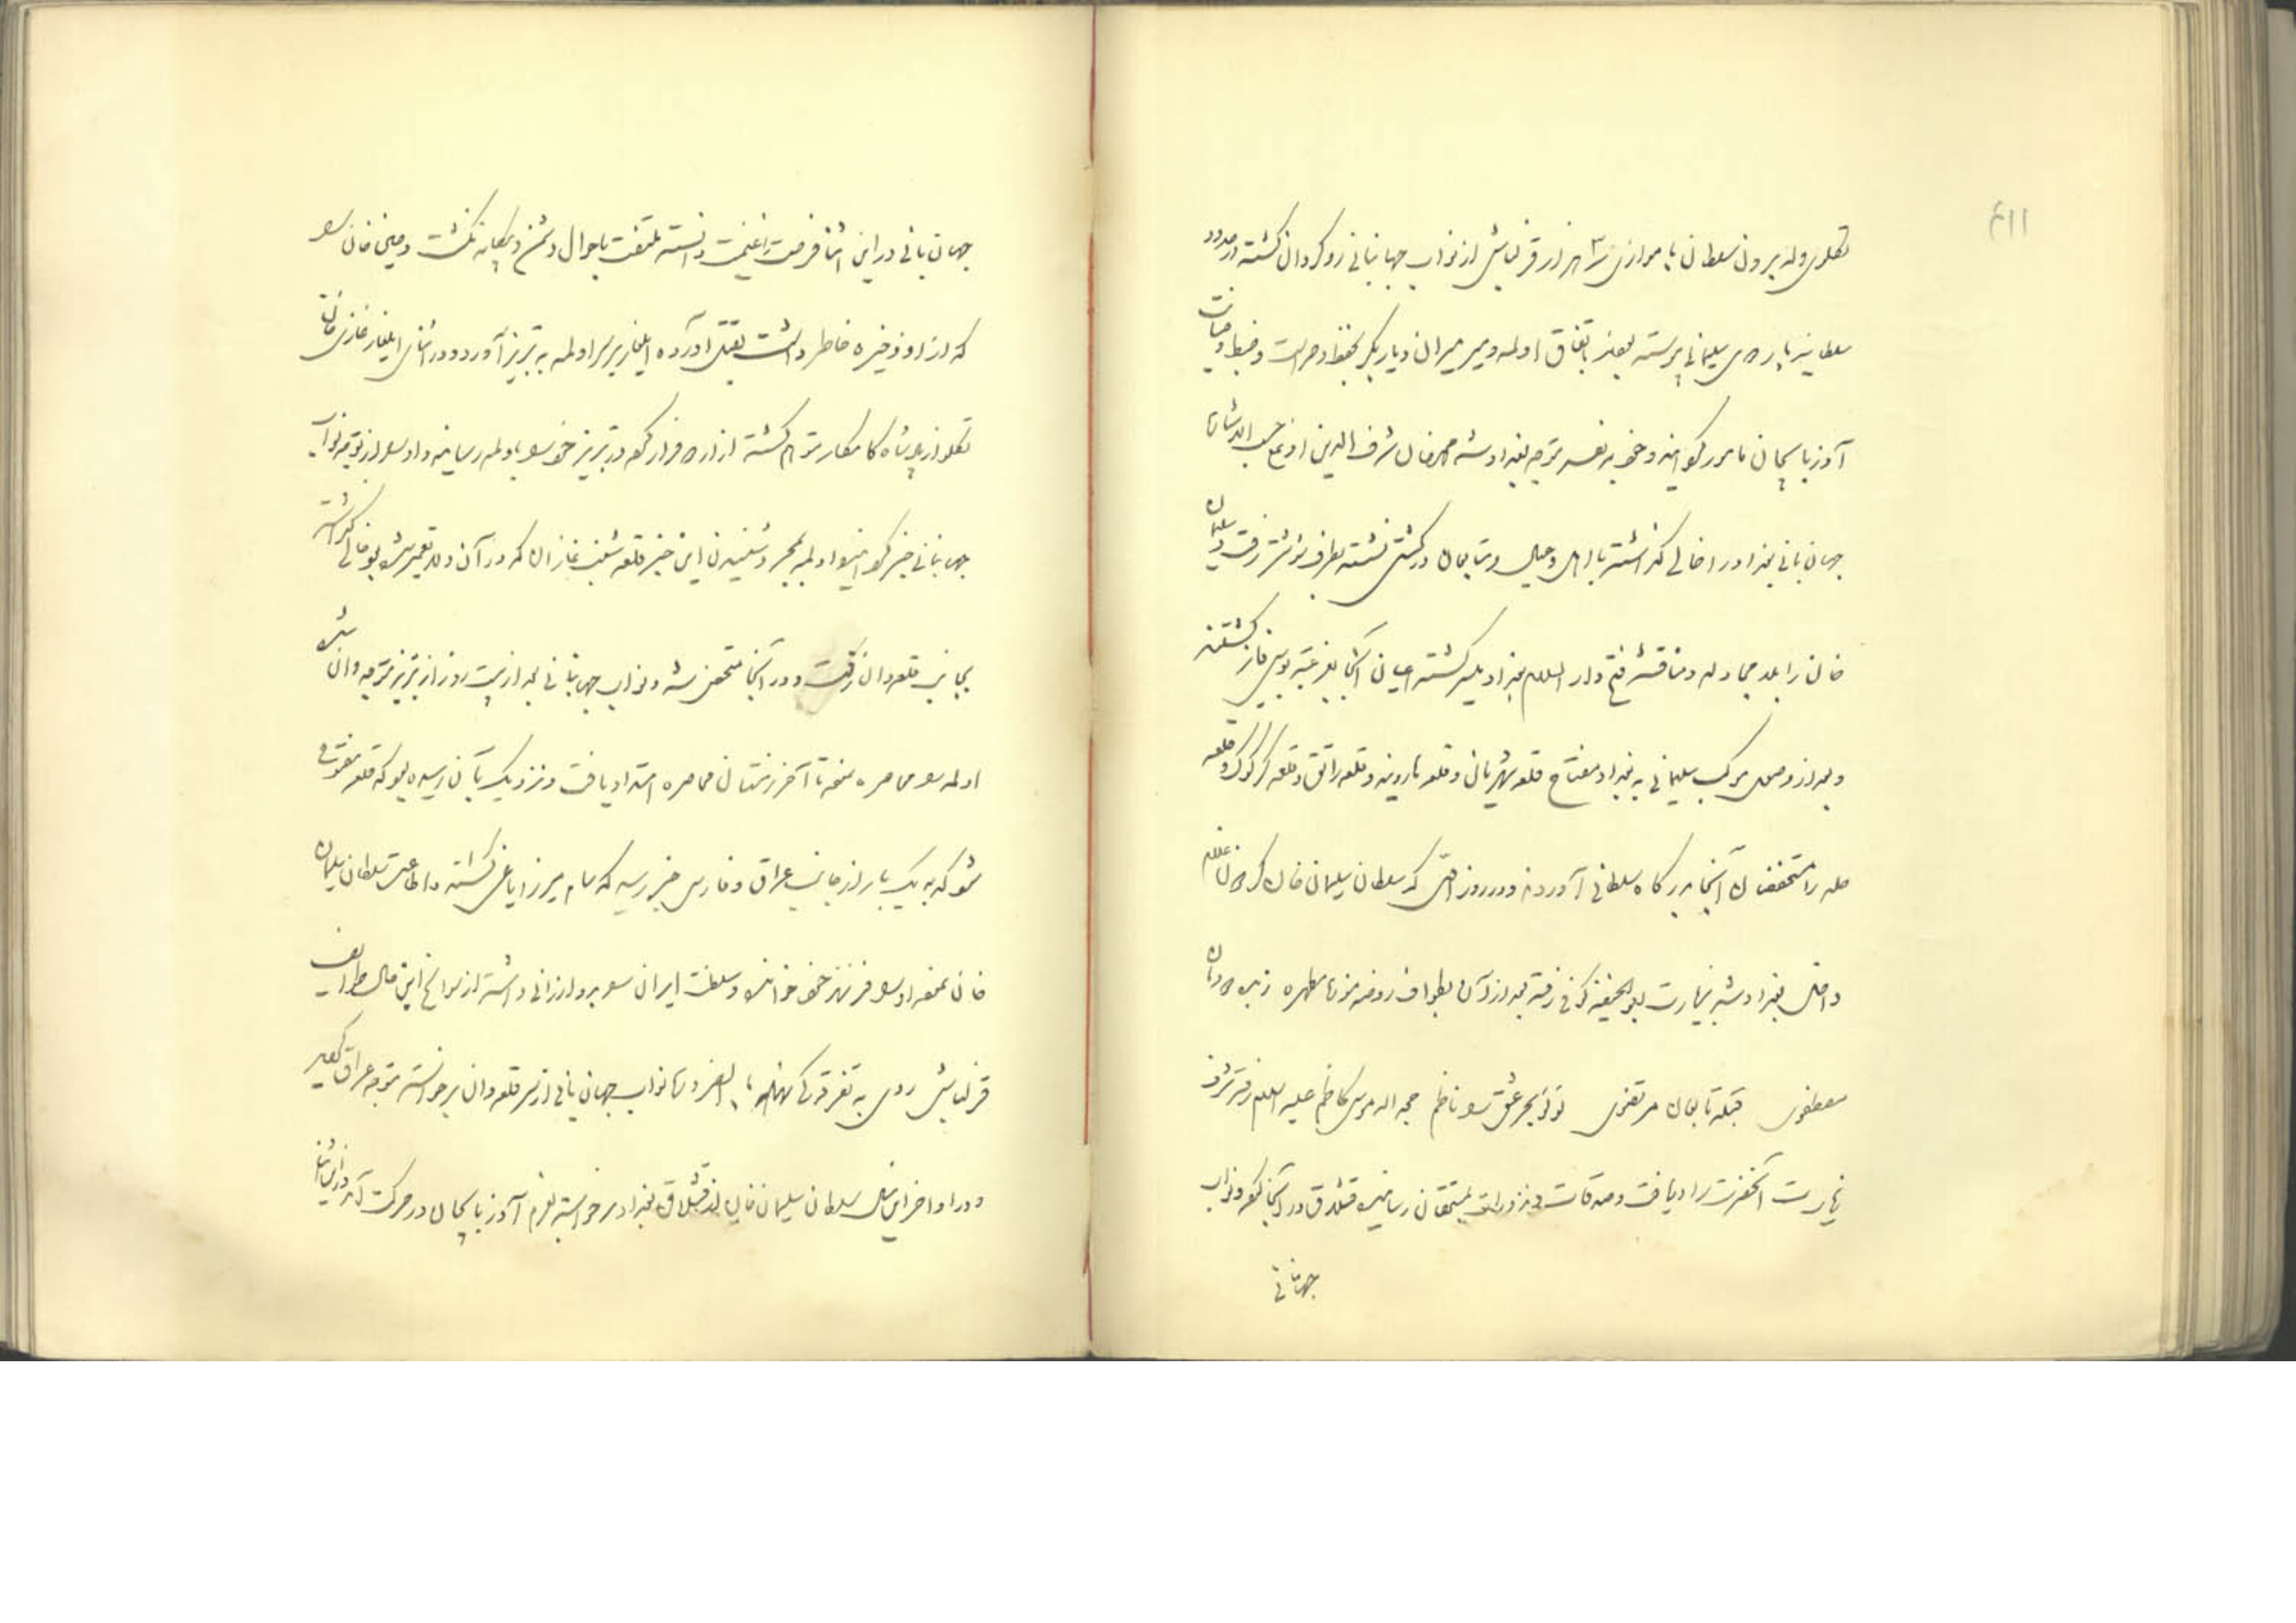 ۴۱۱
تکلوی و له بیرون سلطان با موازی سه هزار قزلباش از نواب جهانبانی رو گردان گشته در حدود
سلطانیه باردوی سلیمانی پیوسته بودند باتفاق اولمه و میر میران دیاربکر بحفظ و حراست و ضبط و صیانت
آذربایجان مامور گردانیده و خود به نفسه متوجه بغداد شد محمد خان شرف الدین اوغلی حسب الاشاره
جهانبانی بغداد را خالی گذاشته با اهل و عیال و تابعان در کشتی نشسته بطرف شوشتر رفت و سلیمان
خان را بلا مجادله و مناقشه فتح دار السلام بغداد میسر گشته اعیان آنجا بعز عتبه بوسی فایز گشتند
و بعد از وصول موکب سلیمانی به بغداد مفتاح قلعه شهربانی و قلعه هارونیه و قلعه راتق و قلعه کرکوک و قلعه
حله را مستحفظان آنجا بدرگاه سلطانی آوردند و در روز اول که سلطان سلیمان خان
داخل بغداد شد بزیارت ابو حنیفه کوفی رفته بعد از آن بطواف روضه منوره مطهره زبده دودمان
مصطفوی قبله تابعان مرتضوی لؤلؤ بحر عشق را ناظم حجه الله موسی کاظم علیه السلام رفته شرف
زیارت آنحضرت را دریافت و صدقات و نذورات بمستحقان رسانیده قشلاق در آنجا کرد و نواب
جهانبانی
جهانبانی در این اثنا فرصت را غنیمت دانسته ملتفت باحوال دشمن و بیگانه نگشت و حسین خان را
که از او ذخیره خاطر داشت بقتل آورده ایلغار بر سر اولمه به تبریز آورد و در اثنای ایلغار غازی خان
تکلو از پادشاه کامکار متوهم گشته از اردو فرار کرد و در تبریز خود را باولمه رسانید و او را از توجه نواب
جهانبانی خبر گردانید و اولمه بمجرد شنیدن این خبر قلعه شنب غازان که در آن ولا تعمیر شده بود خالی گذاشته
بجانب قلعه وان رفت و در آنجا متحصن شد و نواب جهانبانی بعد از بیست روز از تبریز متوجه وان شده
اولمه را محاصره نمود تا آخر زمستان محاصره امتداد یافت و نزدیک بآن رسیده بود که قلعه مفتوح
شود که به یک بار از جانب عراق و فارس خبر رسید که سام میرزا یاغی گشته و اطاعت سلطان سلیمان
خان نموده او را فرزند خود خوانده و سلطنت ایران را برو ارزانی داشته از سوانح این حال طوایف
قزلباش روی به تفرقه نهاده بالضروره نواب جهانبانی از سر قلعه وان برخواسته متوجه عراق گردید
و در اواخر این سال سلطان سلیمان خان از قشلاق بغداد برخواسته بعزم آذربایجان در حرکت آمد و در این اثنا